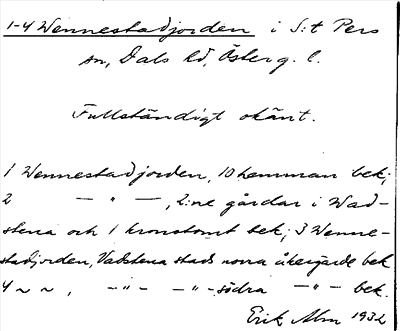 1-4 Wennestadjorden i S:t Pers
sn, Dals hd, Österg. l.
Fullständigt okänt.
1 Wennestadjorden, 10 hemman bek;
2 — " —, 2:ne gårdar i Wad-
stena och 1 kronotomt bek; 3 Wenne-
stadjorden, Vadstena stads norra åkergärde bek
4 ~ ~, -"- -"- södra -"- bek.
Erik Alm 1932